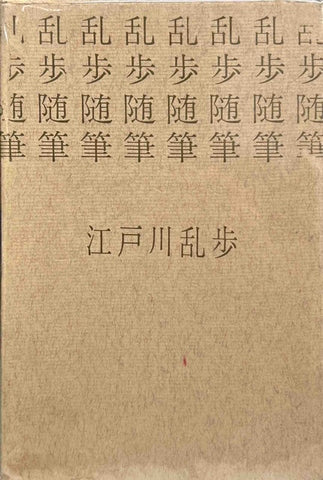 乱歩随筆
乱歩随筆
乱歩随筆
乱歩随筆
乱歩随筆
乱歩随筆
乱歩随筆
乱歩随筆
江戸川乱歩